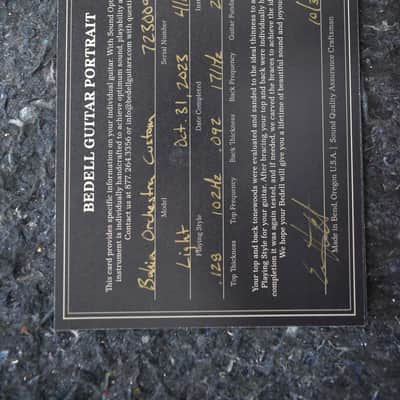 BEDELL GUITAR PORTRAIT
This card provides specific information on your individual guitar. With Sound Op
instrument is individually handcrafted to achieve optimum sound, playability a
Contact us at 877. 264.3356 or info@bedellguitars.com with questi
Bahia Orchestra Custom 723009
Model Serial Number
Light Oct. 31, 2023 41
Playing Style Date Completed
.128 102Hz .092 171Hz 2
Top Thickness Top Frequency Back Thickness Back Frequency Guitar Funda
Your top and back tonewoods were evaluated and sanded to the ideal thinness to a
Playing Style for your guitar. After bracing, your top and back were individually
completion it was again tested, and if needed, we carved the braces to achieve the id
We hope your Bedell will give you a lifetime of beautiful sound and joyou
10/3
Made in Bend, Oregon U.S.A. | Sound Quality Assurance Craftsman